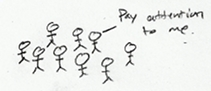 Pay attention
to me.